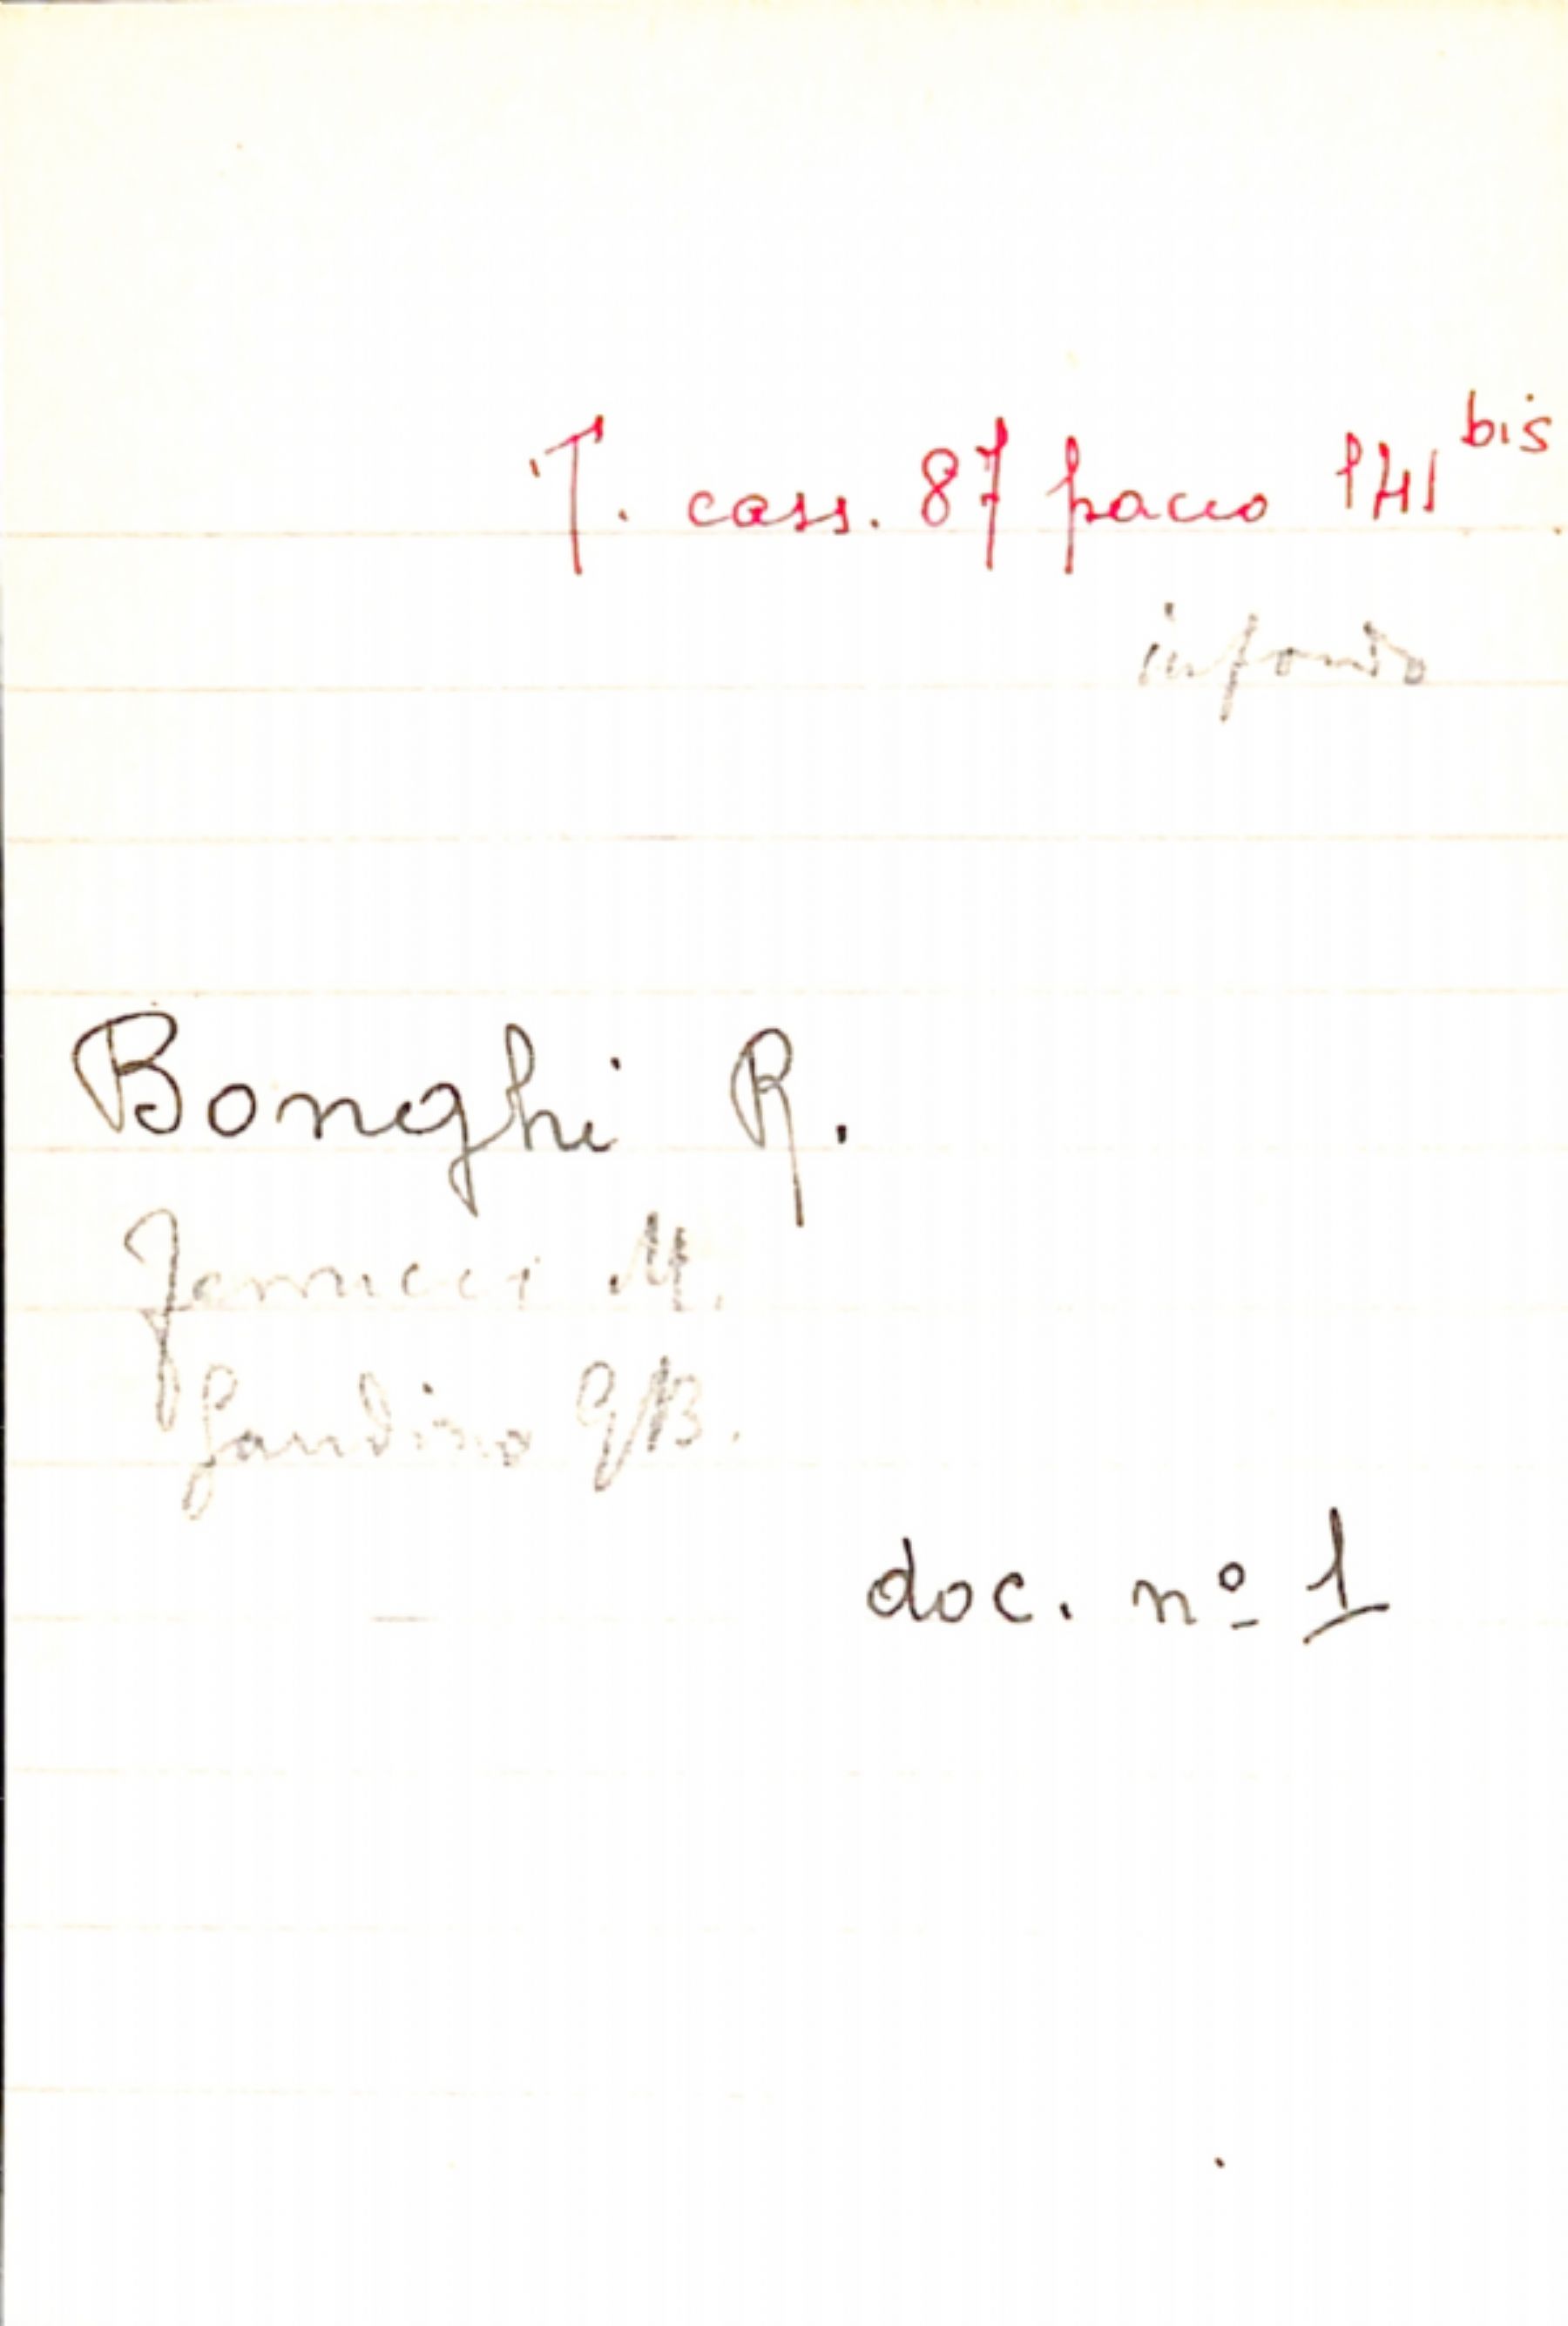 T. cass. 87 pacco 141 bis
in fondo
Bonghi R.
M.
Gandino G B.
doc. nº 1